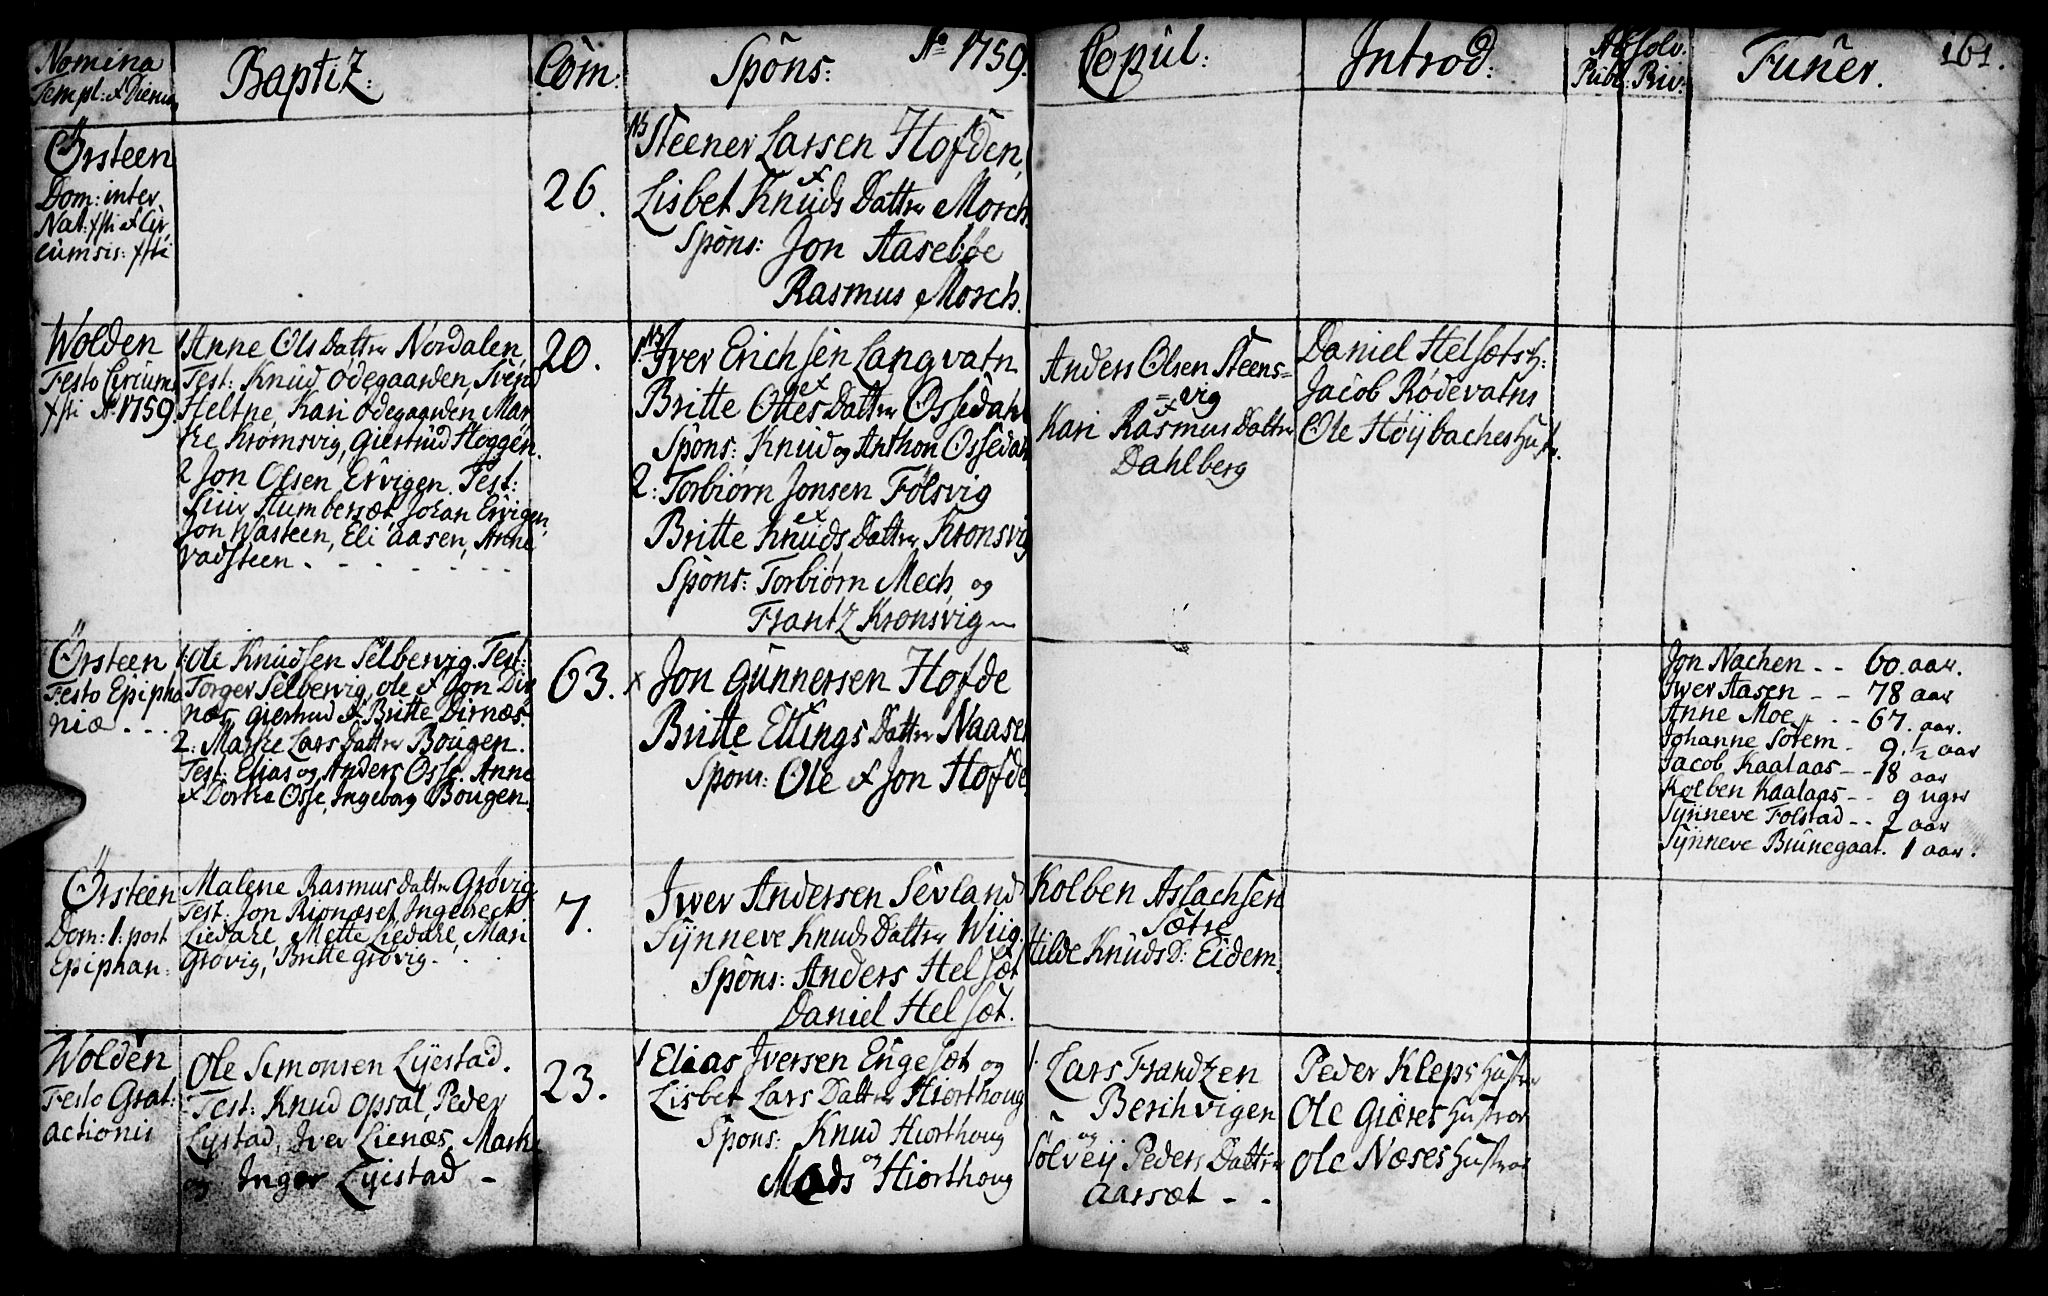 Nomina
Templ: et Dierum
Baptiz:
Com:
Spons:
Ao 1759.
Copul:
Introd:
Absolv:
Publ: Priv:
Funer.
161.
Örsteen
Dom: inter
Nat: xsti et Cir
cumsis: xsti
26.
Steener Larsen Hofden,
et
Lisbet Knuds Datter Morch.
Spons: Jon Aasebøe
Rasmus Morch.
Wolden
Festo Circums
xsti Ao 1759.
1 Anne Ols Datter Nordalen,
Test: Knud Odegaarden, Svend
Heltne, Kari Odegaarden, Mar
the Kromsvig, Giertrud Hoggen.
2 Jon Olsen Ervigen. Test:
Siur Stumbersæt, Johan Ervigen,
Jon Wasteen, Eli Aasen, Anne
Vadsteen - - - - - - -
20.
1. Iver Erichsen Langvatn
et
Britte Ottes Datter Ossedahl
Spons: Knud og Anthon Ossedahl
2: Torbiørn Jonsen Folsvig
et
Britte Knuds Datter Kronsvig
Spons: Torbiørn Mech, og
Frantz Kronsvig
Anders Olsen Steens=
=vig
et
Kari Rasmus Datter
Dahlberg
Daniel Helsæts H:
Jacob Rødevatns
Ole Høijbaches Hustr.
Örsteen
Festo Epipha
niæ - - -
1: Ole Knudsen Selbervig. Test:
Torger Selbervig, Ole et Jon Dir
næs, Giertrud et Britte Dirnæs.
2: Marthe Lars Datter Bougen.
Test: Elias og Anders Osse. Anne
et Dorthe Osse, Ingeborg Bougen.
63.
x Jon Gunnersen Hofde
et
Britte Ellings Datter Naasen
Spons: Ole et Jon Hofde
Jon Nachen - - 60. aar.
Iwer Aasen - - 78 aar
Anne Moe - - 67. aar.
Johanne Sorem - 9. ½ aar
Jacob Kaalaas - - 18 aar
Kolben Kaalaas - - 9 uger
Synneve Folstad - - 2 aar
Synneve Brunegaat. 1 aar.
Örsteen
Dom: 1: post
Epiphan:
Malene Rasmus Datter Grøvig
Test: Jon Rionæset, Ingebrecht
Liedare, Mette Liedare, Mari
Grovig, Britte Grøvig.
7.
Iwer Andersen Sevland
Synneve Knuds Datter Wiig.
Spons: Anders Helsæt
Daniel Helsæt.
Kolben Aslachsen
Sætre
Hilde Knuds D: Eidem.
Wolden
Festo Grat:
actionis
Ole Simonsen Lyestad.
Test: Knud Opsal, Peder
Lystad, Iver Lienæs, Marthe
og Inger Lyestad -
23.
1 Elias Iversen Engesæt og
Lisbet Lars Datter Hiorthoug
Spons: Knud Hiorthoug
og
Mads Hiorthoug
1. Lars Frandzen
Berihvigen
og
Sølvey Peders Datter
Aarsæt - -
Peder Kleps Hustroe
Ole Giæres Hustroe
Ole Næses Hustroe